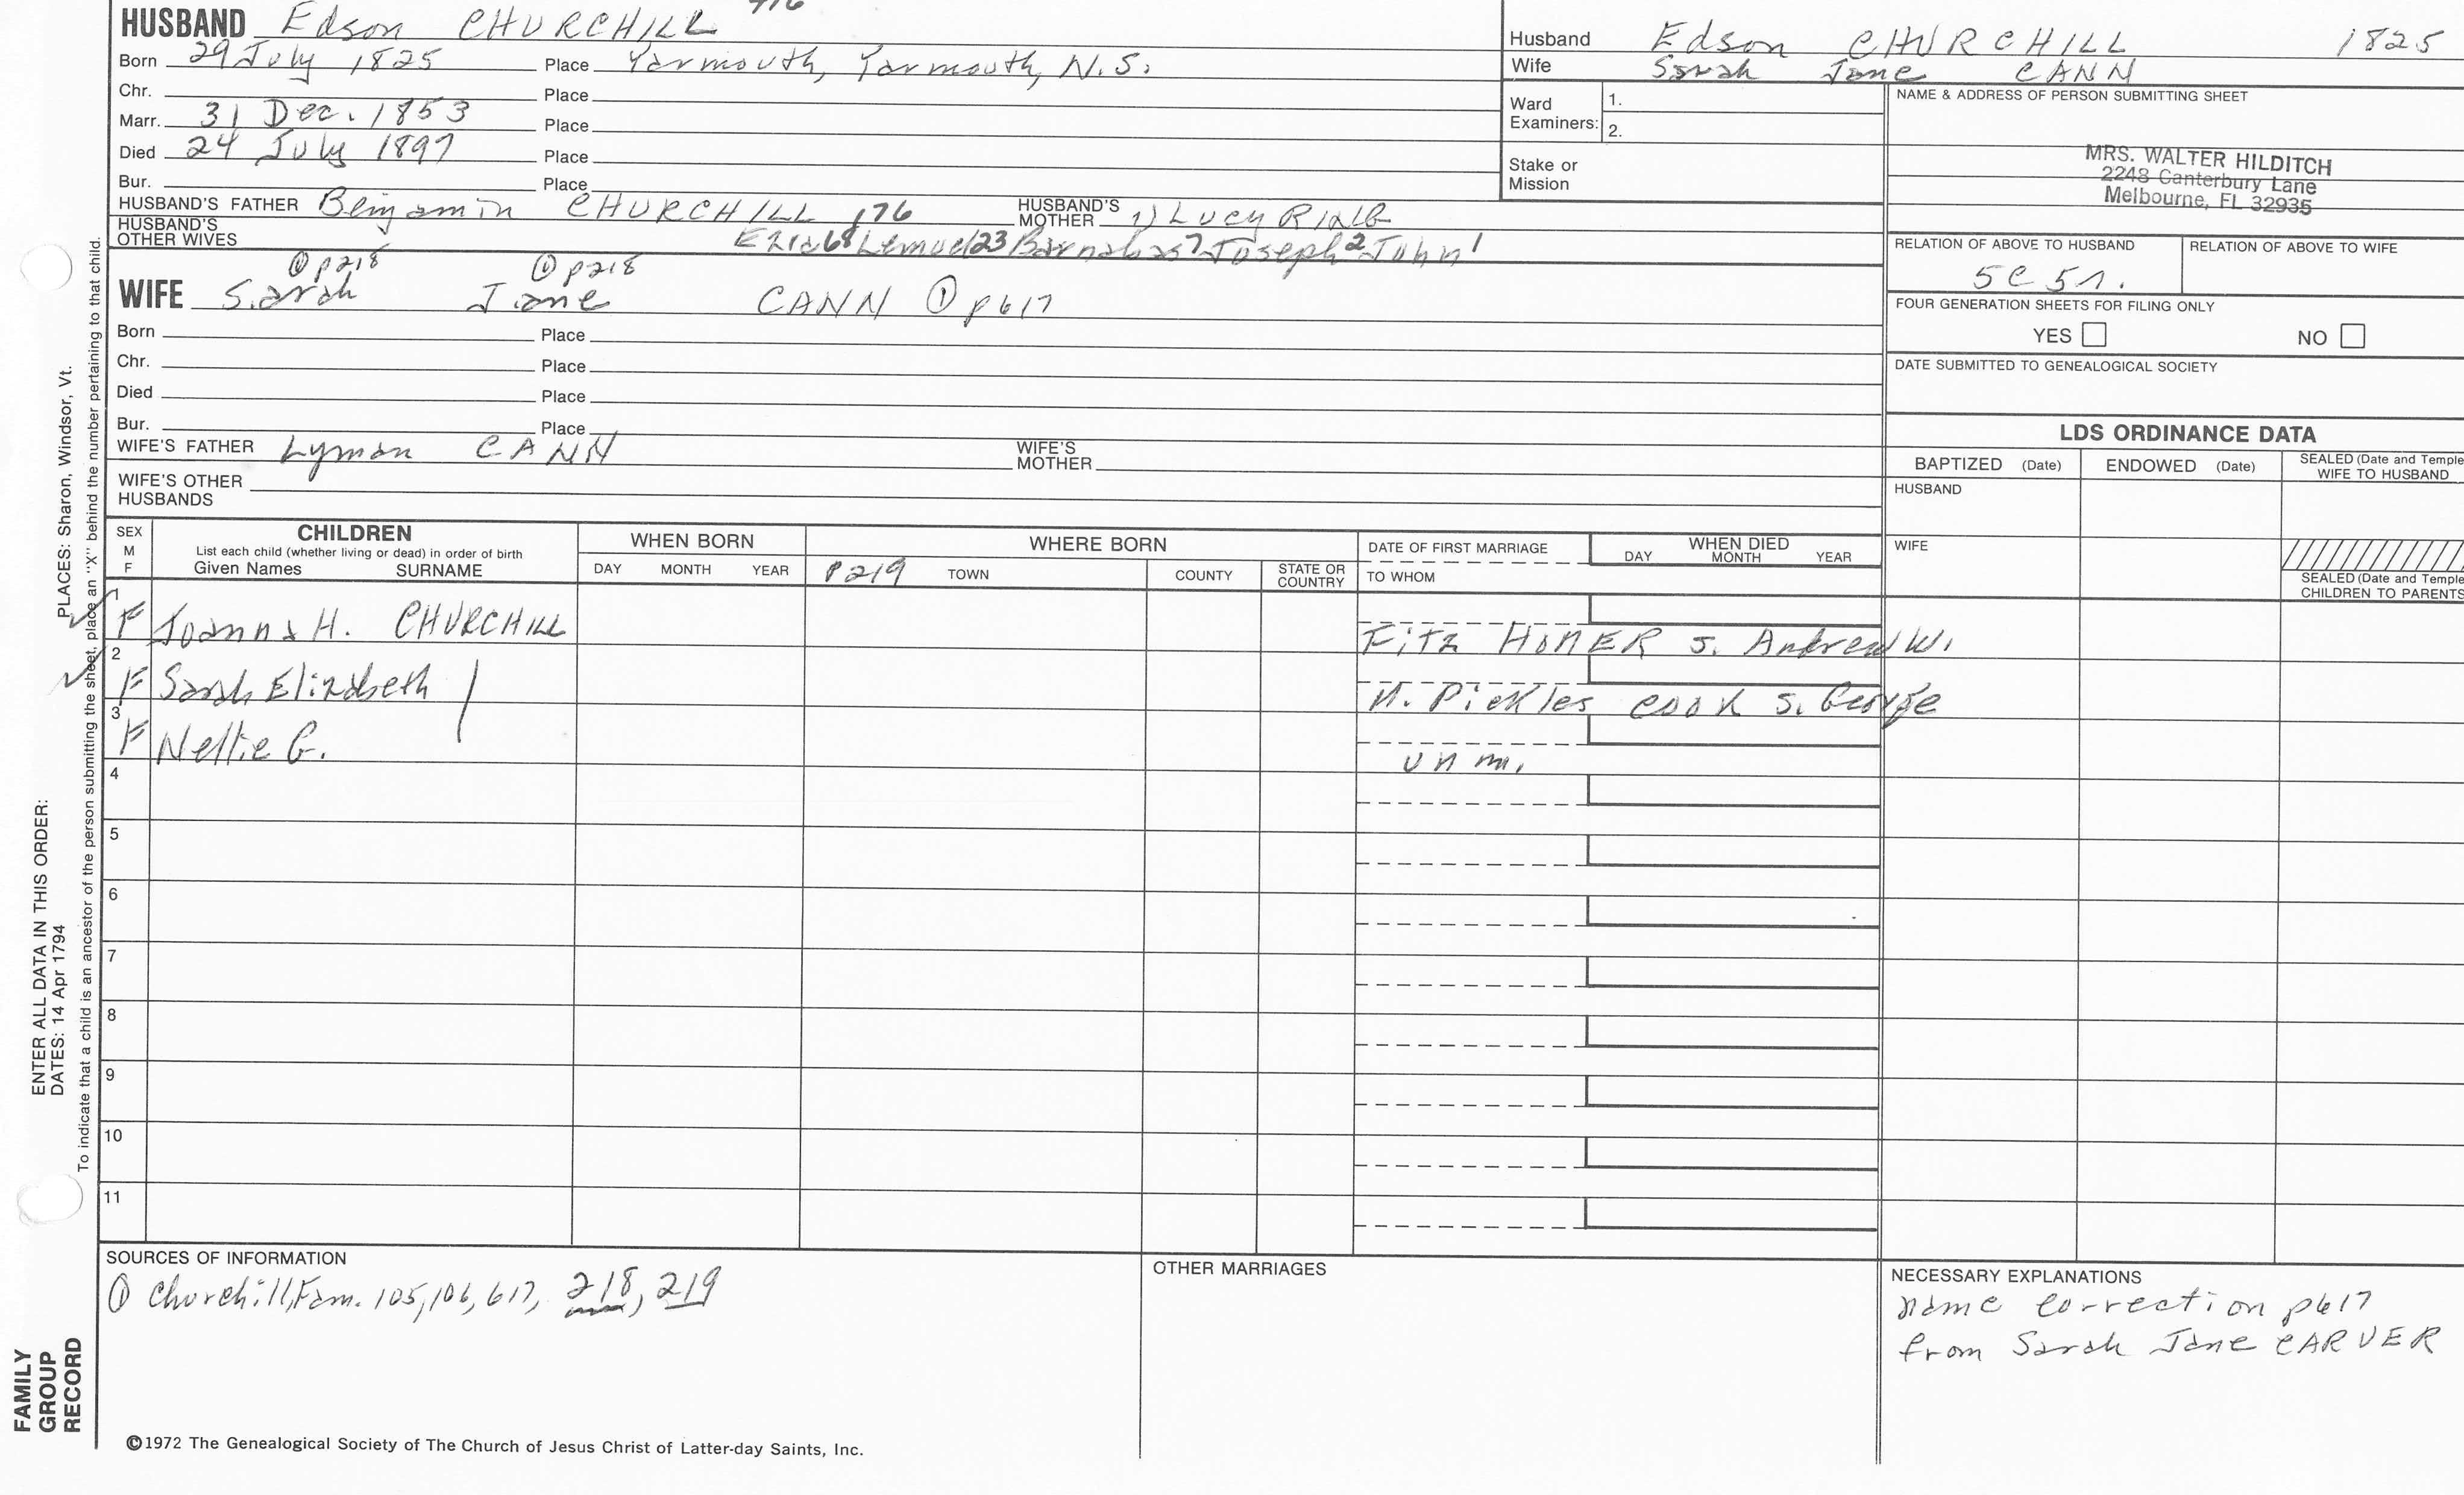 HUSBAND Edson CHURCHILL
Born 29 July 1825 Place Yarmouth, Yarmouth, N.S.
Chr. Place
Marr. 31 Dec. 1853 Place
Died 24 July 1897 Place
Bur. Place
HUSBAND'S FATHER Benjamin CHURCHILL 176 HUSBAND'S MOTHER 1) Lucy
HUSBAND'S OTHER WIVES Ezra68 Lemuel23 Barnabas7 Joseph2 John1
① p218 ① p218
WIFE Sarah Jane CANN ① p617
Born Place
Chr. Place
Died Place
Bur. Place
WIFE'S FATHER Lyman CANN WIFE'S MOTHER
WIFE'S OTHER HUSBANDS
Husband Edson CHURCHILL 1825
Wife Sarah Jane CANN
Ward Examiners: 1.
2.
Stake or Mission
NAME & ADDRESS OF PERSON SUBMITTING SHEET
MRS. WALTER HILDITCH
2248 Canterbury Lane
Melbourne, FL 32935
RELATION OF ABOVE TO HUSBAND RELATION OF ABOVE TO WIFE
5C
FOUR GENERATION SHEETS FOR FILING ONLY
YES NO
DATE SUBMITTED TO GENEALOGICAL SOCIETY
LDS ORDINANCE DATA
BAPTIZED (Date) ENDOWED (Date) SEALED (Date and Temple
WIFE TO HUSBAND
HUSBAND
WIFE
SEALED (Date and Temple
CHILDREN TO PARENTS
SEX
M
F
CHILDREN
List each child (whether living or dead) in order of birth
Given Names SURNAME
WHEN BORN
DAY MONTH YEAR
WHERE BORN
P219 TOWN COUNTY STATE OR COUNTRY
DATE OF FIRST MARRIAGE
TO WHOM
WHEN DIED
DAY MONTH YEAR
1 F Joanna H. CHURCHILL Fitz HOMER s. Andrew W.
2 F Sarah Elizabeth N. Pickles COOK s. George
3 F Nellie G. unm.
4
5
6
7
8
9
10
11
SOURCES OF INFORMATION
① Churchill, Fam. 105, 106, 617, 218, 219
OTHER MARRIAGES
NECESSARY EXPLANATIONS
name correction p617
from Sarah Jane CARVER
©1972 The Genealogical Society of The Church of Jesus Christ of Latter-day Saints, Inc.
FAMILY
GROUP
RECORD
ENTER ALL DATA IN THIS ORDER:
DATES: 14 Apr 1794 PLACES: Sharon, Windsor, Vt.
To indicate that a child is an ancestor of the person submitting the sheet, place an "X" behind the number pertaining to that child.